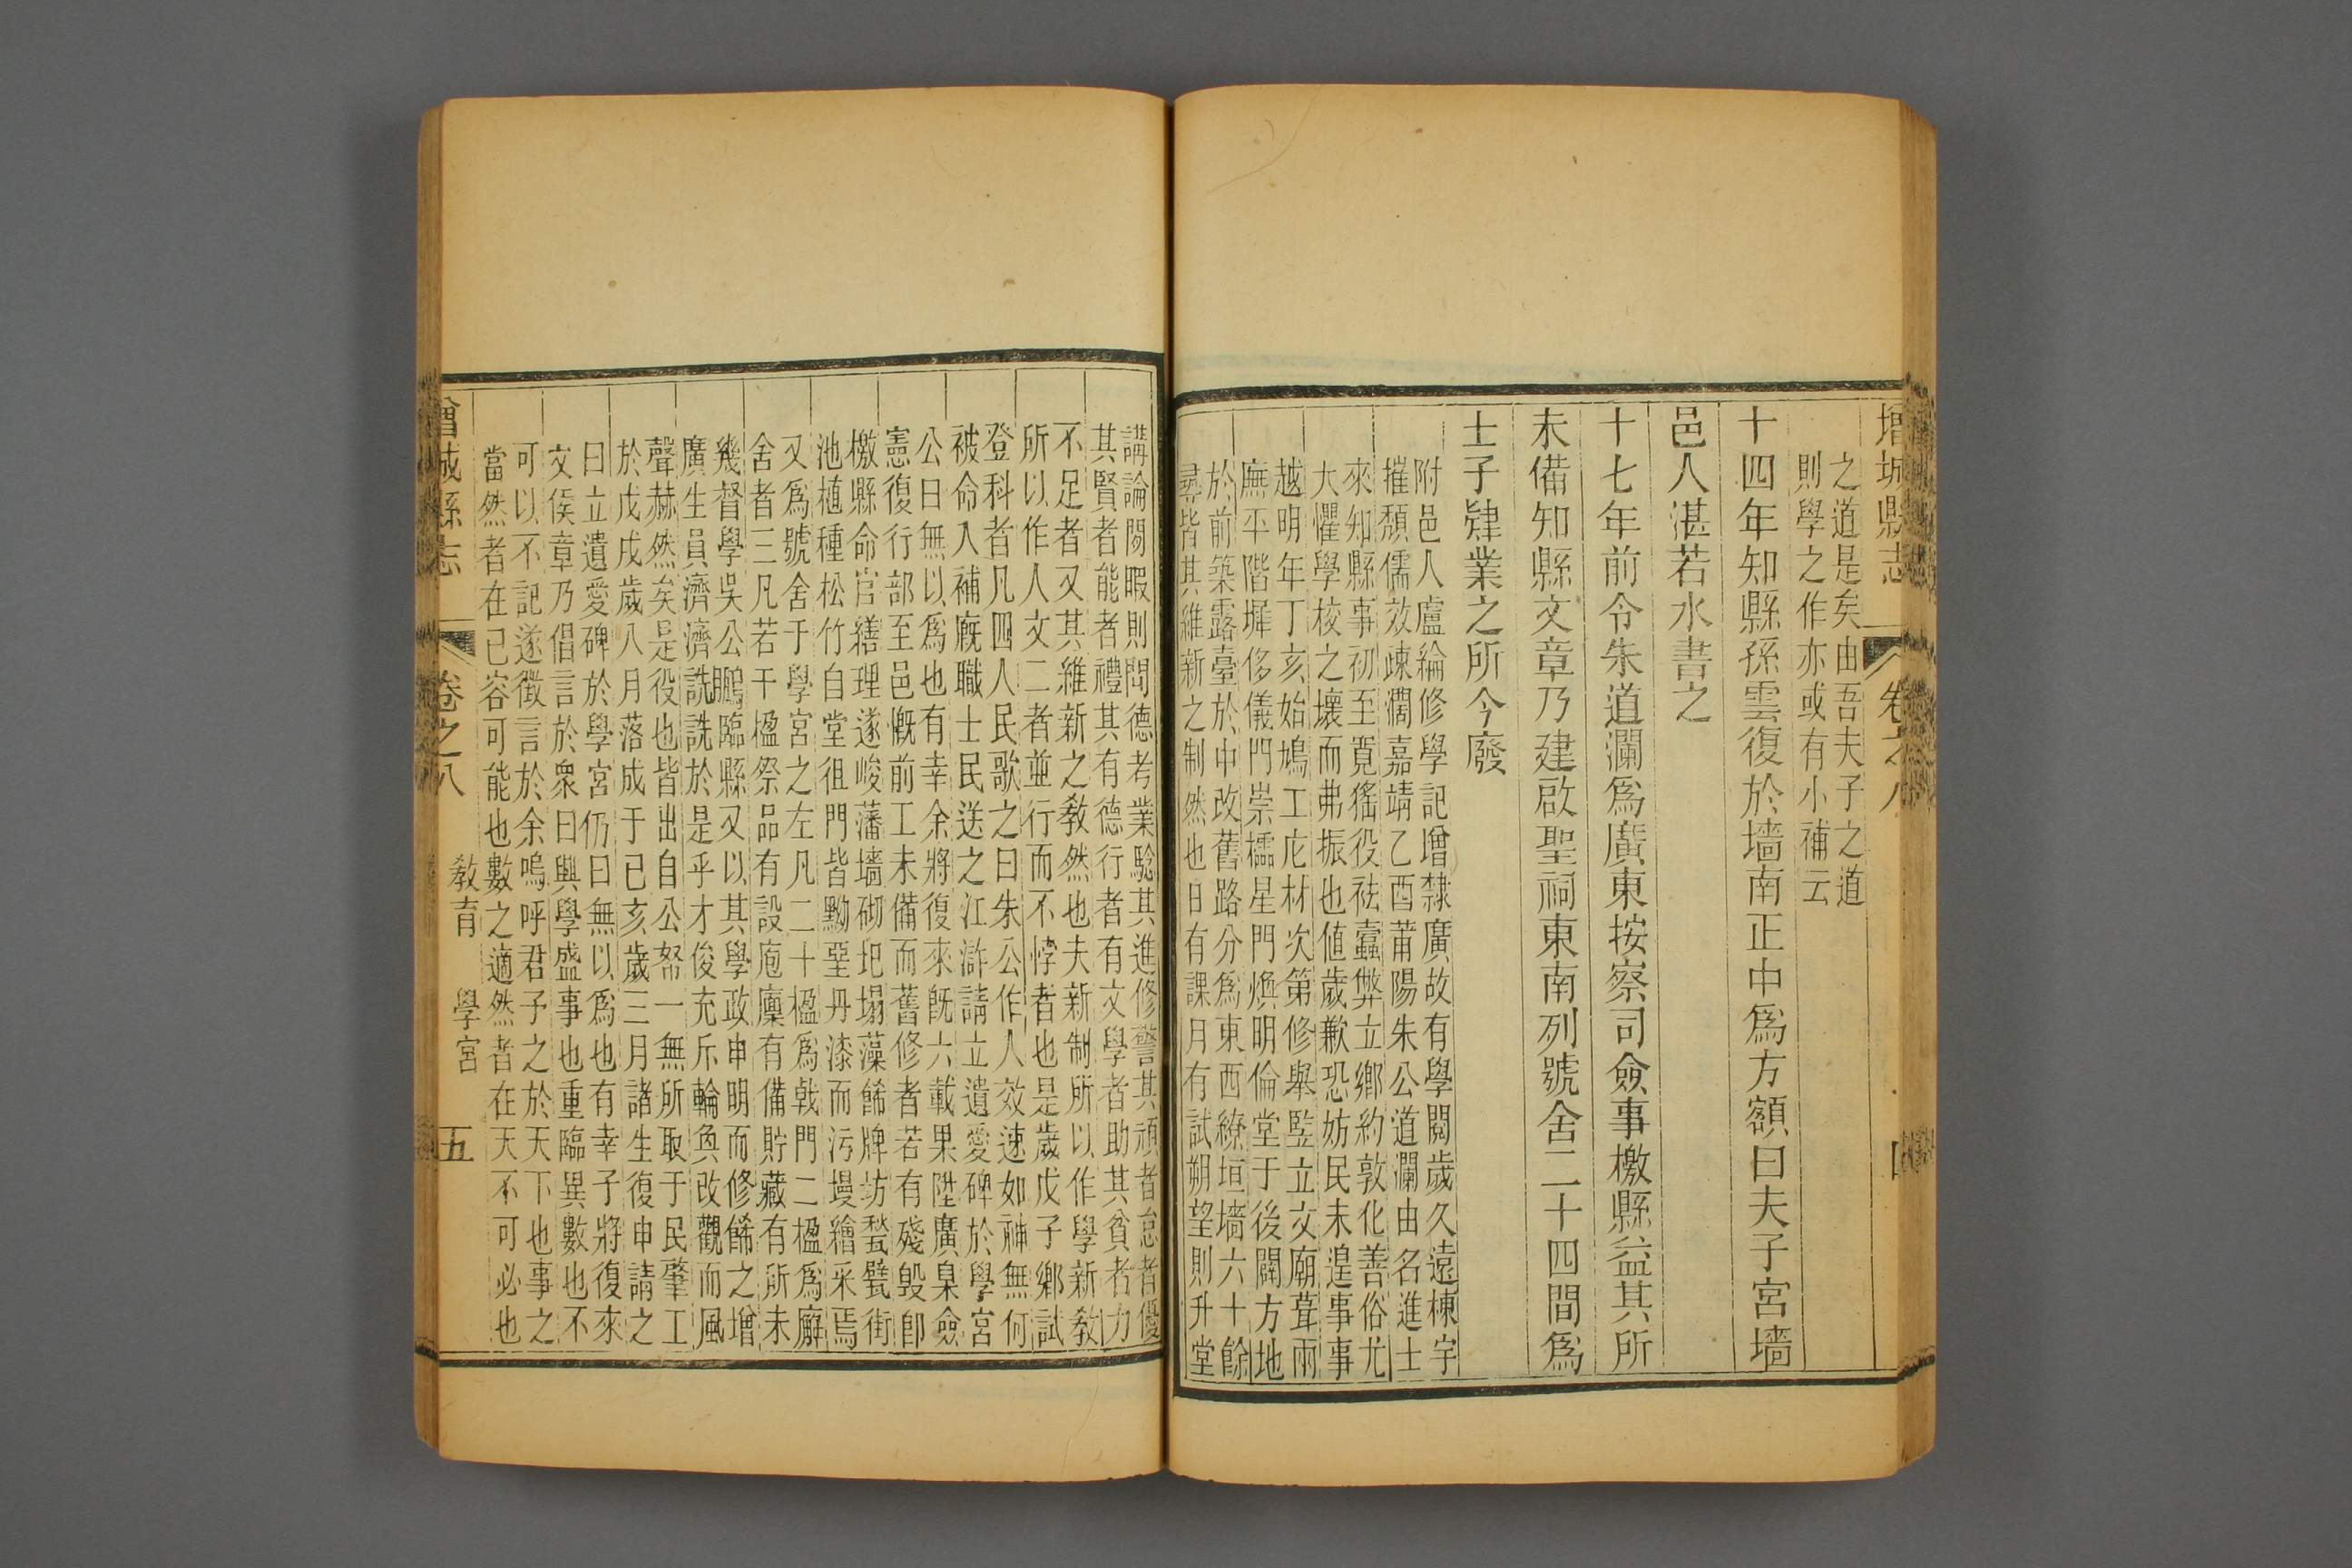 增城縣志
卷之八
四
之道是矣由吾夫子之道
則學之作亦或有小補云
十四年知縣孫雲復於墻南正中爲方額曰夫子宮墻
邑人湛若水書之
十七年前令朱道瀾爲廣東按察司僉事檄縣益其所
未備知縣文章乃建啟聖祠東南列號舍二十四間爲
士子肄業之所今廢
附邑人盧綸修學記增隸廣故有學閱歲久遠棟宇
摧頹儒效疎濶嘉靖乙酉莆陽朱公道瀾由名進士
來知縣事初至寬徭役祛蠹弊立鄉約敦化善俗尤
大懼學校之壞而弗振也値歲歉恐妨民未遑事事
越明年丁亥始鳩工庀材次第修舉監立文廟葺兩
廡平階墀侈儀門崇櫺星門煥明倫堂于後闢方地
於前築露臺於中改舊路分爲東西繚垣墻六十餘
尋皆其維新之制然也日有課月有試朔望則升堂
講論閱暇則問德考業騐其進修警其頑者怠者優
其賢者能者禮其有德行者有文學者助其貧者力
不足者又其維新之教然也夫新制所以作學新敎
所以作人文二者並行而不悖者也是歲戊子鄉試
登科者凡四人民歌之曰朱公作人效速如神無何
被命入補廐職士民送之江滸請立遺愛碑於學宮
公曰無以爲也有幸余將復來旣六載果陞廣臬僉
憲復行部至邑慨前工未備而舊修者若有殘毁卽
檄縣命官繕理遂峻藩墻砌圯塌藻餙牌坊甃甓街
池植種松竹自堂徂門皆黝堊丹漆而污墁繪采焉
又爲號舍于學宮之左凡二十楹爲戟門二楹爲廨
舍者三凡若干楹祭品有設庖廩有備貯藏有所未
幾督學吳公鵬臨縣又以其學政申明而修餙之增
廣生員濟濟詵詵於是乎才俊充斥輪奐改觀而風
聲赫然矣是役也皆出自公帑一無所取于民肇工
於戊戌歲八月落成于已亥歲三月諸生復申請之
曰立遺愛碑於學宮仍曰無以爲也有幸子將復來
文侯章乃倡言於衆曰興學盛事也重臨異數也不
可以不記遂徵言於余嗚呼君子之於天下也事之
當然者在已容可能也數之適然者在天不可必也
增城縣志
卷之八
敎育
學宮
五